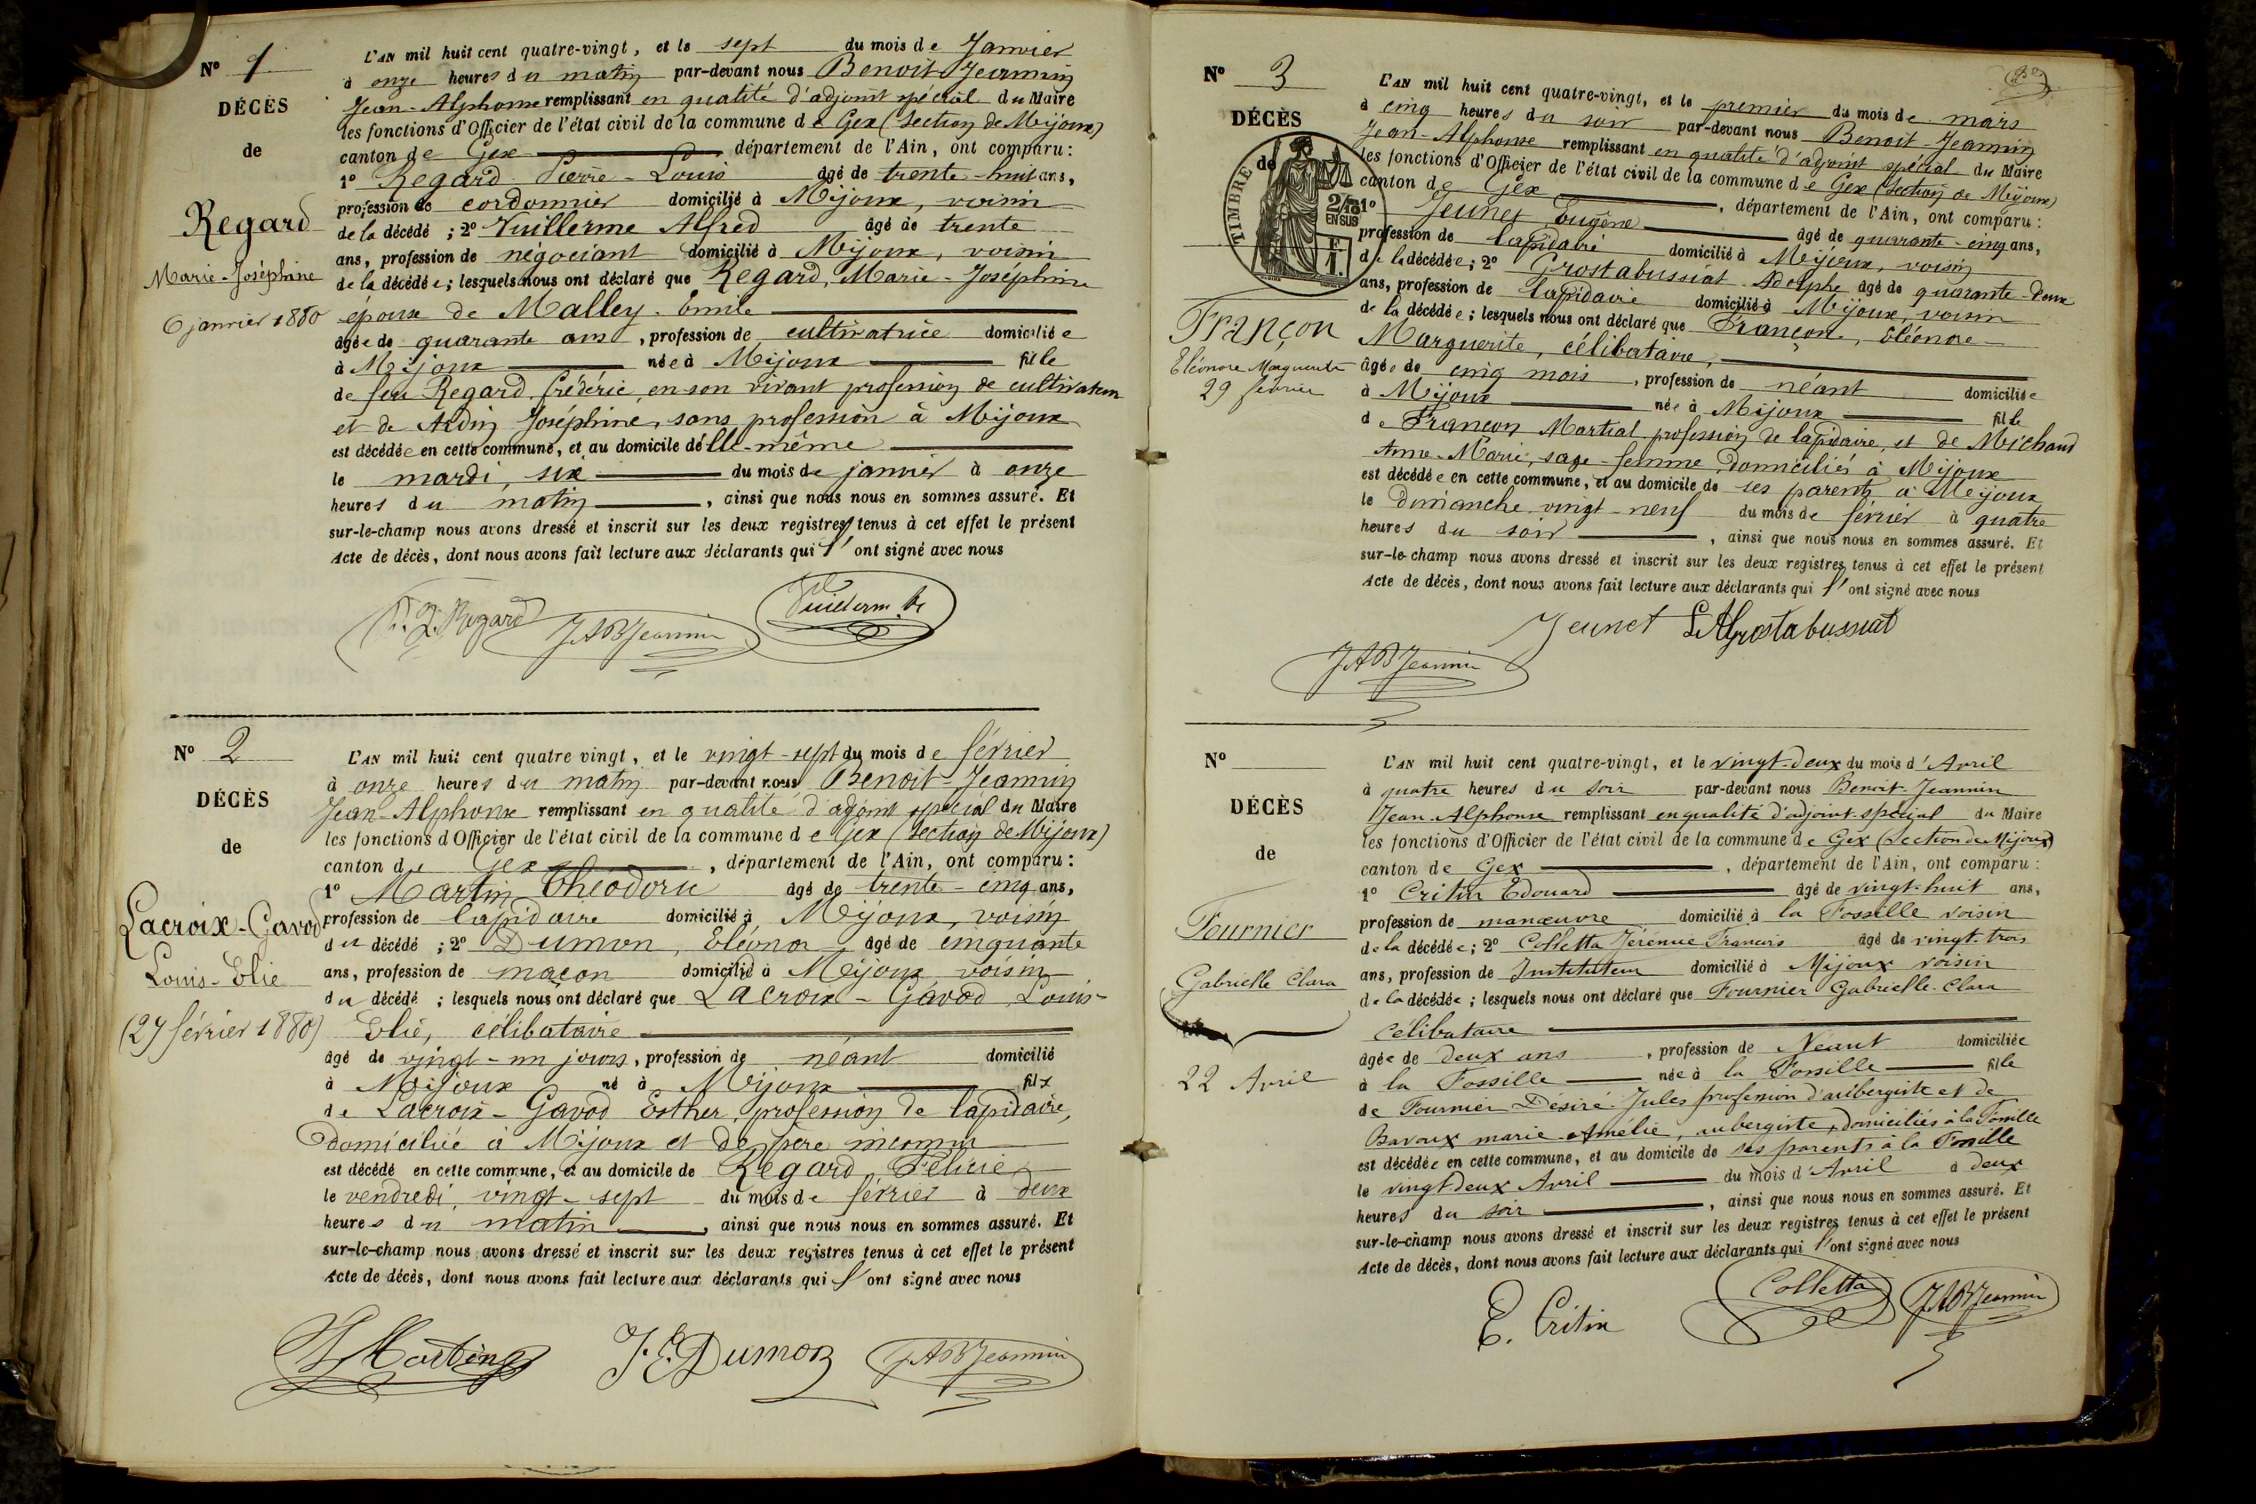 N° 1
DÉCÈS
de
Regard
Marie-Joséphine
6 janvier 1880
L'AN mil huit cent quatre-vingt, et le sept du mois de Janvier
à onze heures du matin par-devant nous Benoit-Jeannin
Jean-Alphonse remplissant en qualité d'adjoint spécial du Maire
les fonctions d'Officier de l'état civil de la commune de Gex (Section de Mijoux)
canton de Gex département de l'Ain, ont comparu :
1° Regard Pierre-Louis âgé de trente-huit ans,
profession de cordonnier domicilié à Mijoux, voisin
de la décédé ; 2° Vuillerme Alfred âgé de trente
ans, profession de négociant domicilié à Mijoux, voisin
de la décédée ; lesquels nous ont déclaré que Regard, Marie-Joséphine
épouse de Malley Emile
âgée de quarante ans, profession de cultivatrice domiciliée
à Mijoux née à Mijoux fille
de feu Regard Frédéric, en son vivant profession de cultivateur
et de Ardin Joséphine, sans profession à Mijoux
est décédée en cette commune, et au domicile d'elle-même
le mardi, six du mois de janvier à onze
heures du matin, ainsi que nous nous en sommes assuré. Et
sur-le-champ nous avons dressé et inscrit sur les deux registres tenus à cet effet le présent
Acte de décès, dont nous avons fait lecture aux déclarants qui l'ont signé avec nous
P. L. Regard JABJeannin Vuillerme
N° 2
DÉCÈS
de
Lacroix-Gavod
Louis-Elie
(27 février 1880)
L'AN mil huit cent quatre vingt, et le vingt-sept du mois de février
à onze heures du matin par-devant nous Benoit-Jeannin
Jean-Alphonse remplissant en qualité d'adjoint spécial du Maire
les fonctions d'Officier de l'état civil de la commune de Gex (Section de Mijoux)
canton de Gex, département de l'Ain, ont comparu :
1° Martin Théodore âgé de trente-cinq ans,
profession de lapidaire domicilié à Mijoux, voisin
du décédé ; 2° Dumon, Eléonor âgé de cinquante
ans, profession de maçon domicilié à Mijoux voisin
du décédé ; lesquels nous ont déclaré que Lacroix-Gavod, Louis-
Elie, célibataire
âgé de vingt-un jours, profession de néant domicilié
à Mijoux né à Mijoux fils
de Lacroix-Gavod Esther, profession de lapidaire,
domiciliée à Mijoux et de père inconnu
est décédé en cette commune, et au domicile de Regard, Félicie
le vendredi, vingt-sept du mois de février à deux
heures du matin, ainsi que nous nous en sommes assuré. Et
sur-le-champ nous avons dressé et inscrit sur les deux registres tenus à cet effet le présent
Acte de décès, dont nous avons fait lecture aux déclarants qui l'ont signé avec nous
Martin J.E.Dumon JABJeannin
N° 3
DÉCÈS
de
TIMBRE
2/10
EN SUS
Françon
Eléonore Marguerite
29 février
L'AN mil huit cent quatre-vingt, et le premier du mois de mars
à cinq heures du soir par-devant nous Benoit-Jeannin
Jean-Alphonse remplissant en qualité d'adjoint spécial du Maire
les fonctions d'Officier de l'état civil de la commune de Gex (Section de Mijoux)
canton de Gex, département de l'Ain, ont comparu :
1° Jeunet Eugène âgé de quarante-cinq ans,
profession de lapidaire domicilié à Mijoux, voisin
de la décédée ; 2° Grostabussiat Adolphe âgé de quarante-deux
ans, profession de lapidaire domicilié à Mijoux, voisin
de la décédée ; lesquels nous ont déclaré que Françon, Eléonore
Marguerite, célibataire,
âgée de cinq mois, profession de néant domiciliée
à Mijoux née à Mijoux fille
de Françon Martial profession de lapidaire, et de Michaud
Anne-Marie, sage-femme, domiciliés à Mijoux
est décédée en cette commune, et au domicile de ses parents à Mijoux
le dimanche vingt-neuf du mois de février à quatre
heures du soir, ainsi que nous nous en sommes assuré. Et
sur-le-champ nous avons dressé et inscrit sur les deux registres tenus à cet effet le présent
Acte de décès, dont nous avons fait lecture aux déclarants qui l'ont signé avec nous
Jeunet LAGrostabussiat
JABJeannin
N°
DÉCÈS
de
Fournier
Gabrielle Clara
22 Avril
L'AN mil huit cent quatre-vingt, et le vingt-deux du mois d'Avril
à quatre heures du soir par-devant nous Benoit-Jeannin
Jean-Alphonse remplissant en qualité d'adjoint-spécial du Maire
les fonctions d'Officier de l'état civil de la commune de Gex (Section de Mijoux)
canton de Gex, département de l'Ain, ont comparu :
1° Critin Edouard âgé de vingt-huit ans,
profession de manœuvre domicilié à la Fossille voisin
de la décédée ; 2° Colletta Jérémie François âgé de vingt-trois
ans, profession de Instituteur domicilié à Mijoux voisin
de la décédée ; lesquels nous ont déclaré que Fournier Gabrielle-Clara
Célibataire
âgée de deux ans, profession de Néant domiciliée
à la Fossille née à la Fossille fille
de Fournier Désiré-Jules profession d'aubergiste et de
Bavoux marie-Amélie, aubergiste, domiciliés à la Fossille
est décédée en cette commune, et au domicile de ses parents à la Fossille
le vingt deux Avril du mois d'Avril à deux
heures du soir, ainsi que nous nous en sommes assuré. Et
sur-le-champ nous avons dressé et inscrit sur les deux registres tenus à cet effet le présent
Acte de décès, dont nous avons fait lecture aux déclarants qui l'ont signé avec nous
E. Critin Colletta JABJeannin